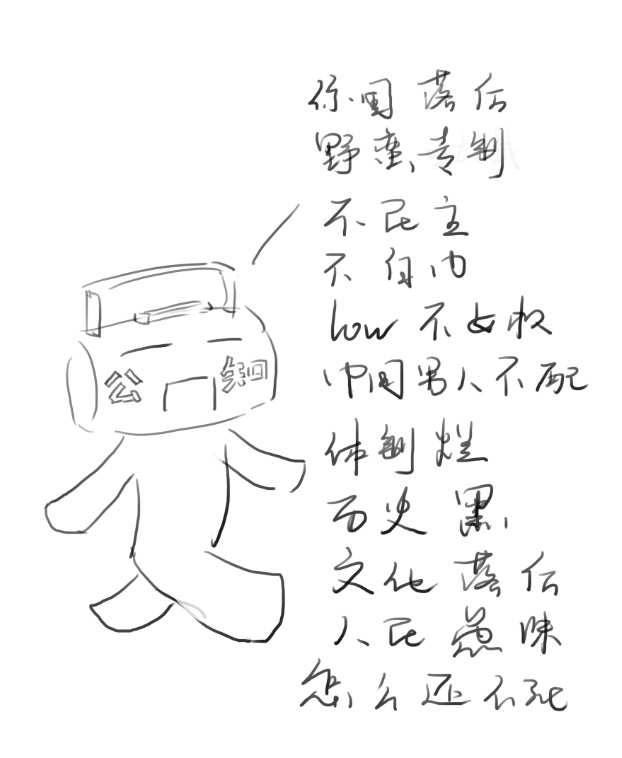 你国落后
野蛮,专制
不民主
不自由
low 不女权
中国男人不配
体制烂
历史黑
文化落后
人民愚昧
怎么还不死
公知